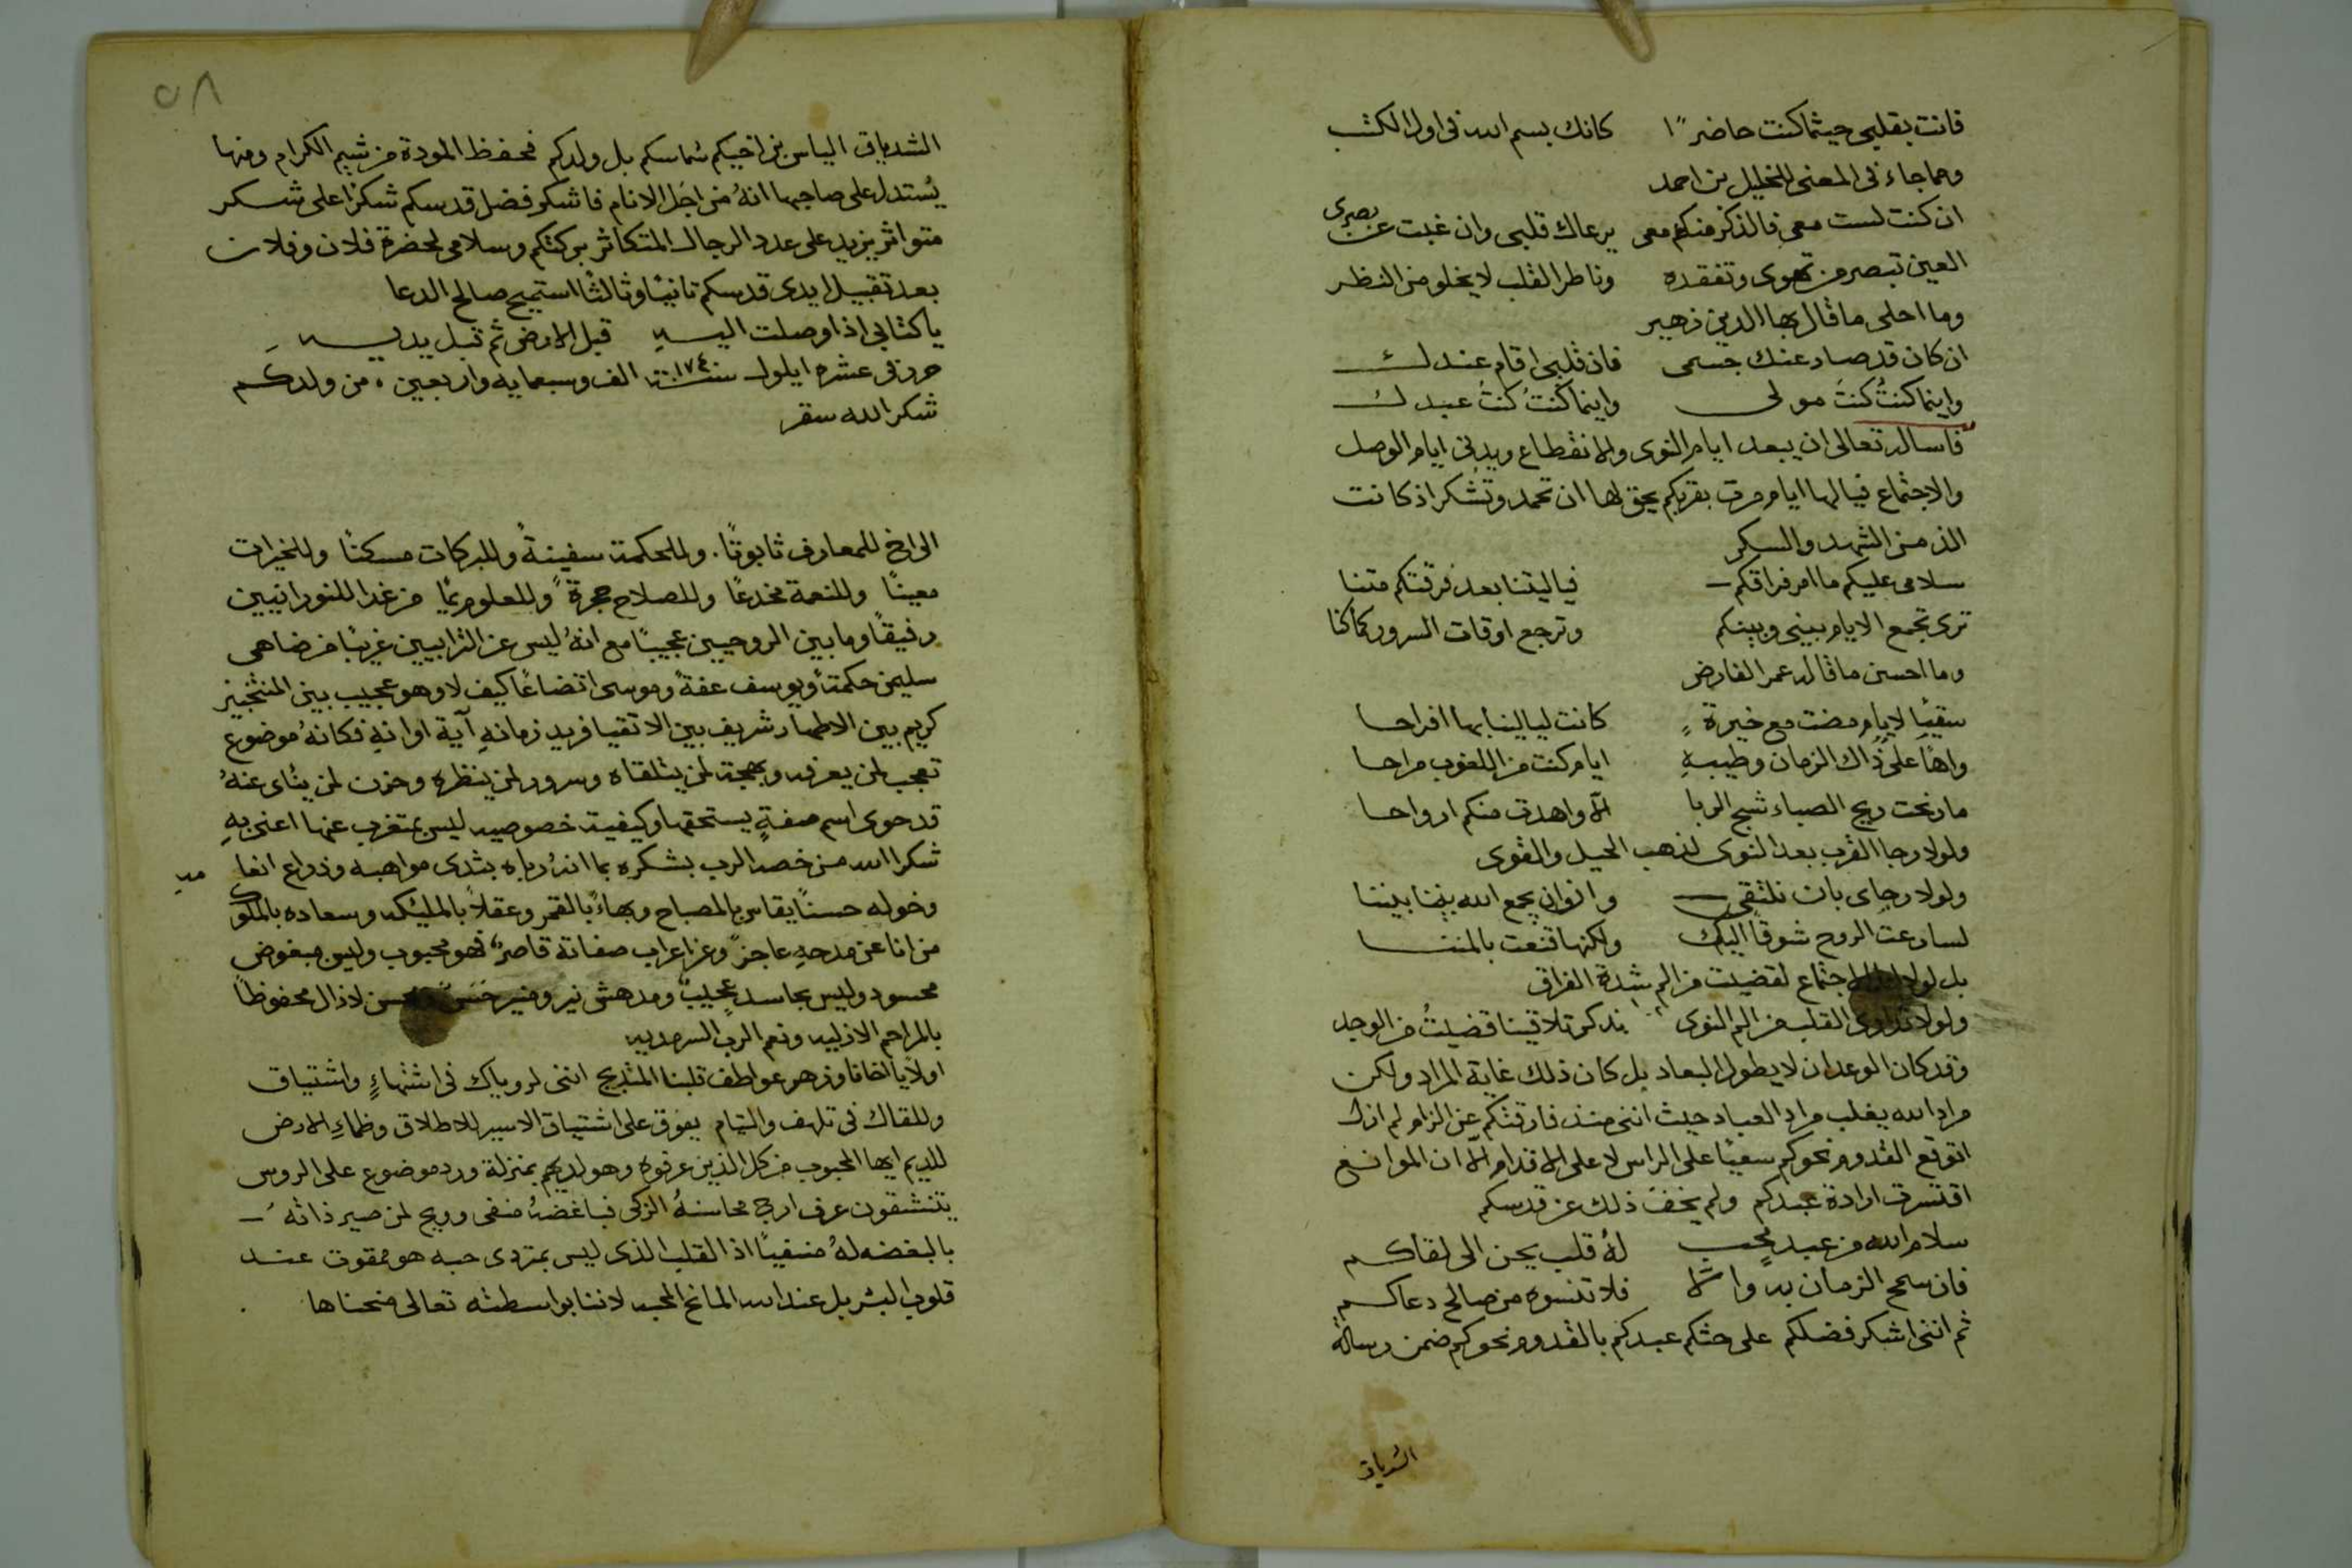 فانت بقلبي حيثما كنت حاضرًا كانك بسم الله في اول الكتب
ومما جاء في المعنى للخليل بن احمد
ان كنت لست معي فالذكر منكم معي يرعاك قلبي وان غبت عن بصرى
العين تبصر من تهوى وتفقده وناظر القلب لا يخلو من النظر
وما احلى ما قال بها الدين زهير
ان كان قد صار عنك جسمى فان قلبى اقام عندك
واينما كنتُ كنتَ مولى واينما كنتَ كنتُ عبدك
فاساله تعالى ان يبعد ايام النوى والانقطاع ويدنى ايام الوصل
والاجتماع فيا لها ايام مرت بقربكم يحق لها ان تحمد وتشكر اذ كانت
الذ من الشهد والسكر
سلامى عليكم ما امر فراقكم فيا ليتنا بعد فرقتكم متنا
ترى تجمع الايام بينى وبينكم وترجع اوقات السرور كما كنا
وما احسن ما قاله عمر الفارض
سقيًا لايام مضت مع خيرة كانت ليالينا بها افراحا
واهًا على ذاك الزمان وطيبهِ ايام كنت من اللغوب مراحا
ما رنحت ريح الصباء شيح الربا الا واهدت منكم ارواحا
ولولا رجا القرب بعد النوى لذهب الحيل والقوى
ولولا رجاى بان نلتقى وان يجمع الله بيننا
لسارعت الروح شوقًا اليك ولكنها قنعت بالمنا
بل لولا الاجتماع لقضيت من الم شدة الفراق
ولولا تداوى القلب من الم النوى بذكر تلاقينا قضيتُ من الوجد
وقد كان الوعد ان لا يطول البعاد بل كان ذلك غاية المراد ولكن
مراد الله يغلب مراد العباد حيث اننى منذ فارقتكم عن الزام لم ازل
اتوقع القدوم نحوكم سعيًا على الراس لا على الاقدام الا ان الموانع
اقتسرت ارادة عبدكم ولم يخف ذلك عن قدسكم
سلام الله من عبد محب لهُ قلب يحن الى لقاكم
فان سمح الزمان به والا فلا تنسوه من صالح دعاكم
ثم اننى اشكر فضلكم على حثكم عبدكم بالقدوم نحوكم ضمن رسالة
الشدياق
٥٨
الشدياق الياس بن اخيكم شماسكم بل ولدكم فحفظ المودة من شيم الكرام ومنها
يُستدل على صاجها انهُ من اجَل الانام فاشكر فضل قدسكم شكرًا على شكر
متواتر يزيد على عدد الرجال المتكاثر ببركتكم وسلامى لحضرة فلان وفلان
بعد تقبيل ايدى قدسكم ثانيًا وثالثًا استميح صالح الدعا
يا كتابى اذا وصلت اليه قبل الارض ثم قبل يديه
حرر فى عشره ايلول سنة ١٧٤٠ الف وسبعمايه واربعين . من ولدكم
شكر الله سقر
الى اخ للمعارف ثابوتًا . وللحكمة سفينةً وللبركات مسكنًا وللخيرات
معينًا وللنعمة مخدعًا وللصلاح حجرةً وللعلوم يمًا من غدا للنورانيين
رفيقًا وما بين الروحيين عجيبًا مع انهُ ليس عن الترابيين غريبًا من ضاهى
سليمن حكمةً ويوسف عفةً وموسى اتضاعًا كيف لا وهو عجيب بين المنتجبين
كريم بين الاطهار شريف بين الاتقيا فريد زمانهِ آية اوانهِ فكانهُ موضوع
تعجب لمن يعرفه وبهجة لمن يتلقاه وسرور لمن ينظره وحزن لمن ينأى عنهُ
قد حوى اسم صفةٍ يستحقها وكيفية خصوصيه ليس بمتغرب عنها اعنى بهِ
شكر الله من خصه الرب بشكره بما انهُ رباه بثدى مواهبه وذراع انعا مه
وخوله حسنًا يقاس بالمصباح وبهاءً بالقمر وعقلاً بالمليكه وسعاده بالملوك
من انا عن مدحهِ عاجزٌ وعن اعراب صفاته قاصرٌ فهو محبوب وليس مبغوض
محسود وليس بحاسد عجيبٌ ومدهش نير ومنير حَسَن لا زال محفوظًا
بالمراحم الازليه ونعم الرب السرمديه
اولاً يا اخانا وزهر عواطف قلبنا المثبج اننى لروياك فى اشتهاءٍ واشتياق
وللقاك فى تلهف والتيام يفوق على اشتياق الاسير للاطلاق وظماءِ الارض
للديم ايها المحبوب من كل الذين عرفوه وهو لديهم بمنزلة ورد موضوع على الروس
يتنشقون عرف ارج محاسنهُ الزكى فباغضهُ منفى وويح لمن صير ذاتهُ
بالبغضه لهُ منفيًا اذ القلب الذى ليس بمتردى حبه هو ممقوت عند
قلوب البشر بل عند الله المانح المحبه لاننا بواسطته تعالى منحناها